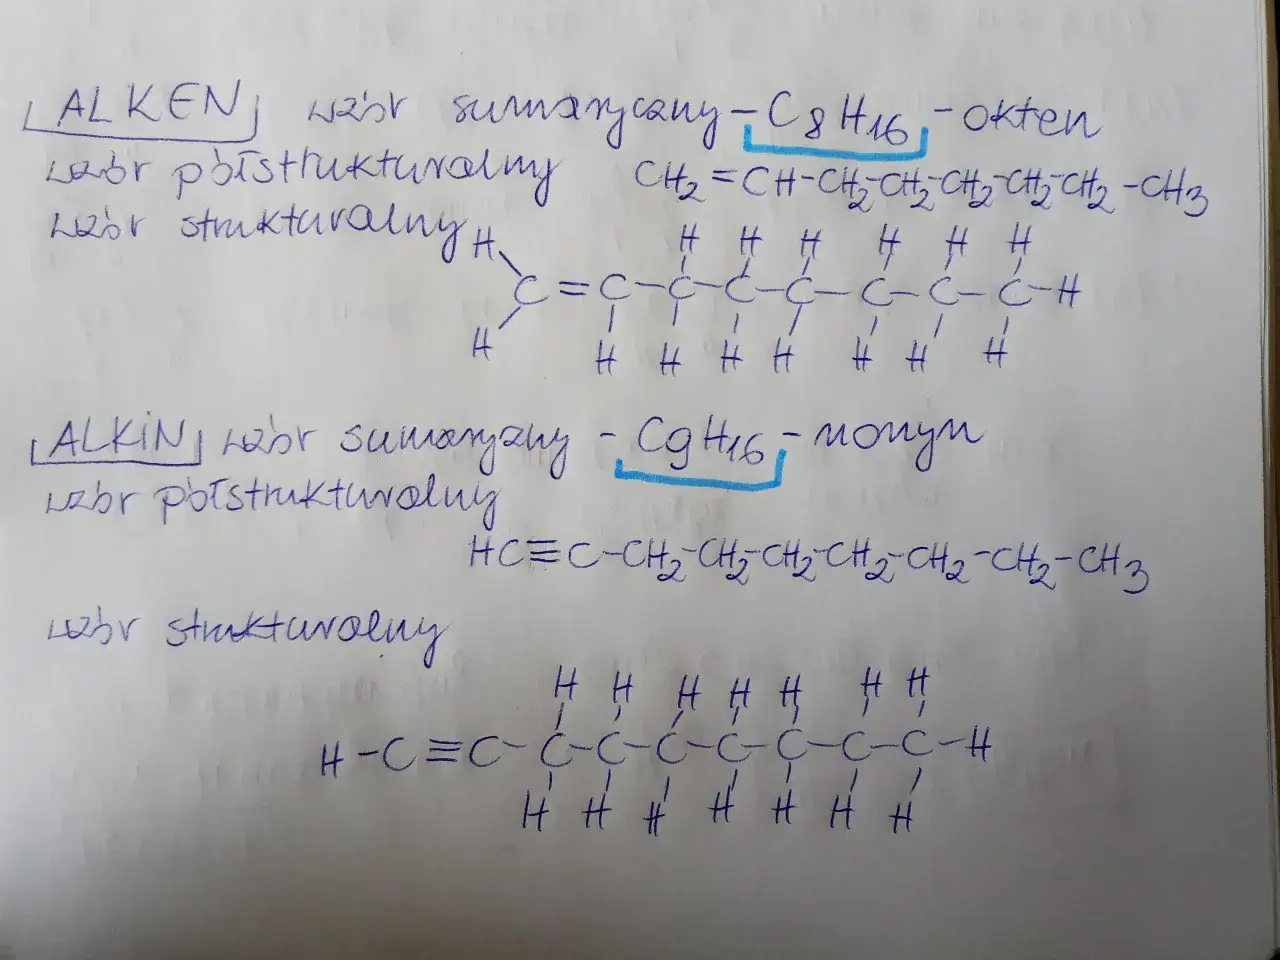 ALKEN wzór sumaryczny – C8H16 – okten
wzór półstrukturalny CH2=CH-CH2-CH2-CH2-CH2-CH2-CH3
wzór strukturalny
H H H H H H H
C=C-C-C-C-C-C-C-H
H H H H H H H H
ALKiN wzór sumaryczny – C9H16 – nonyn
wzór półstrukturalny
HC≡C-CH2-CH2-CH2-CH2-CH2-CH2-CH3
wzór strukturalny
H H H H H H H
H-C≡C-C-C-C-C-C-C-C-H
H H H H H H H